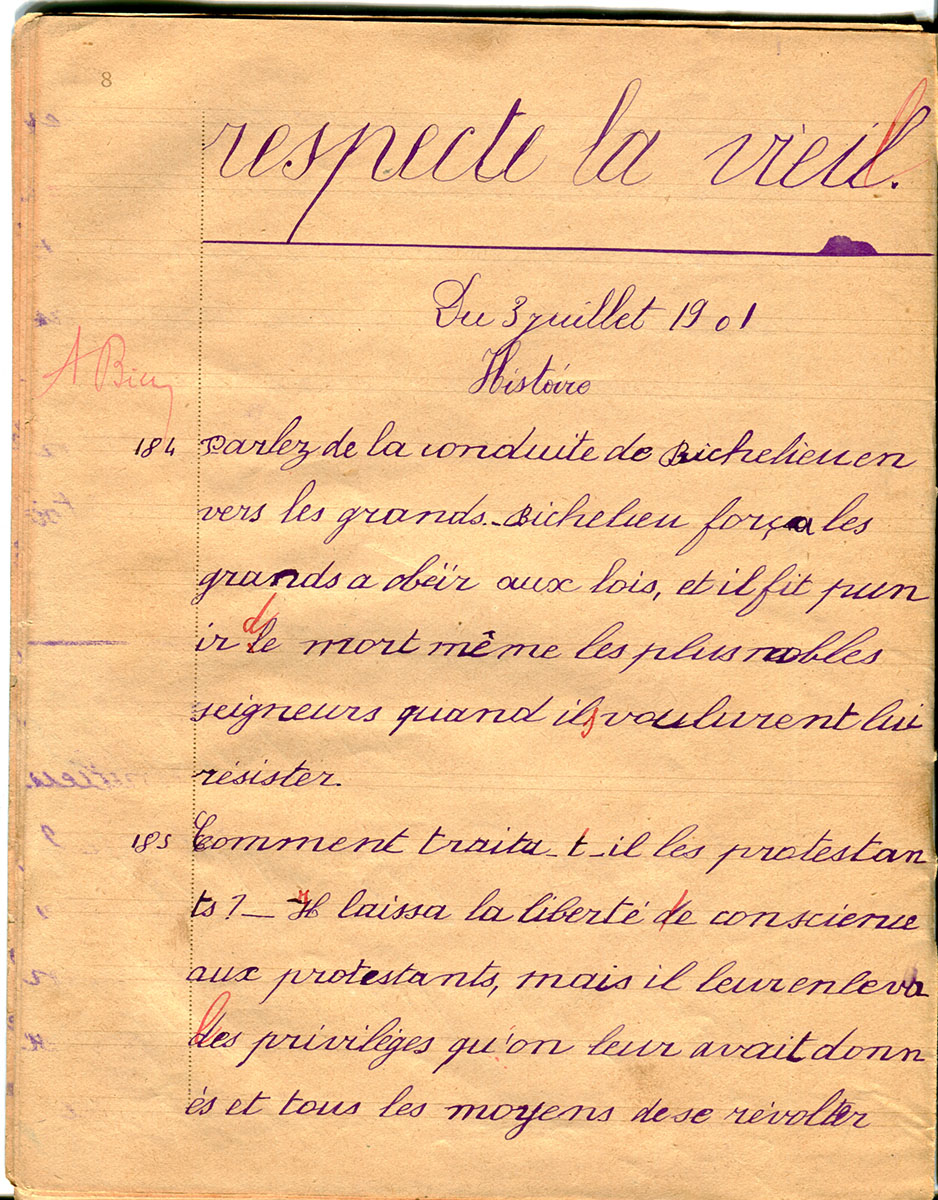 8
respecte la vieil.
Du 3 juillet 1901
Histoire
A Bien
184 Parlez de la conduite de Richelieu en
vers les grands._Richelieu força les
grands a obéir aux lois, et il fit pun
ir de mort même les plus nobles
seigneurs quand ils voulurent lui
résister.
185 Comment traita_t_il les protestan
ts?_ Il laissa la liberté de conscience
aux protestants, mais il leur enleva
les privilèges qu'on leur avait donn
és et tous les moyens de se révolter